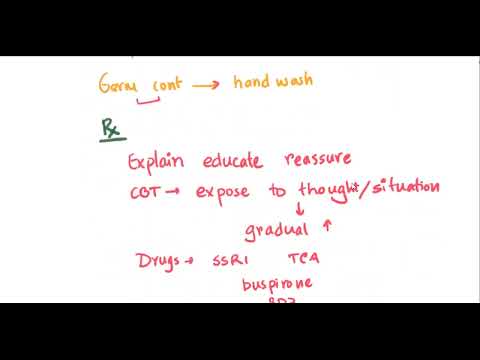 Germ cont → hand wash
Rx
Explain educate reassure
CBT → expose to thought/situation
↓
gradual ↑
Drugs → SSRI TCA
buspirone